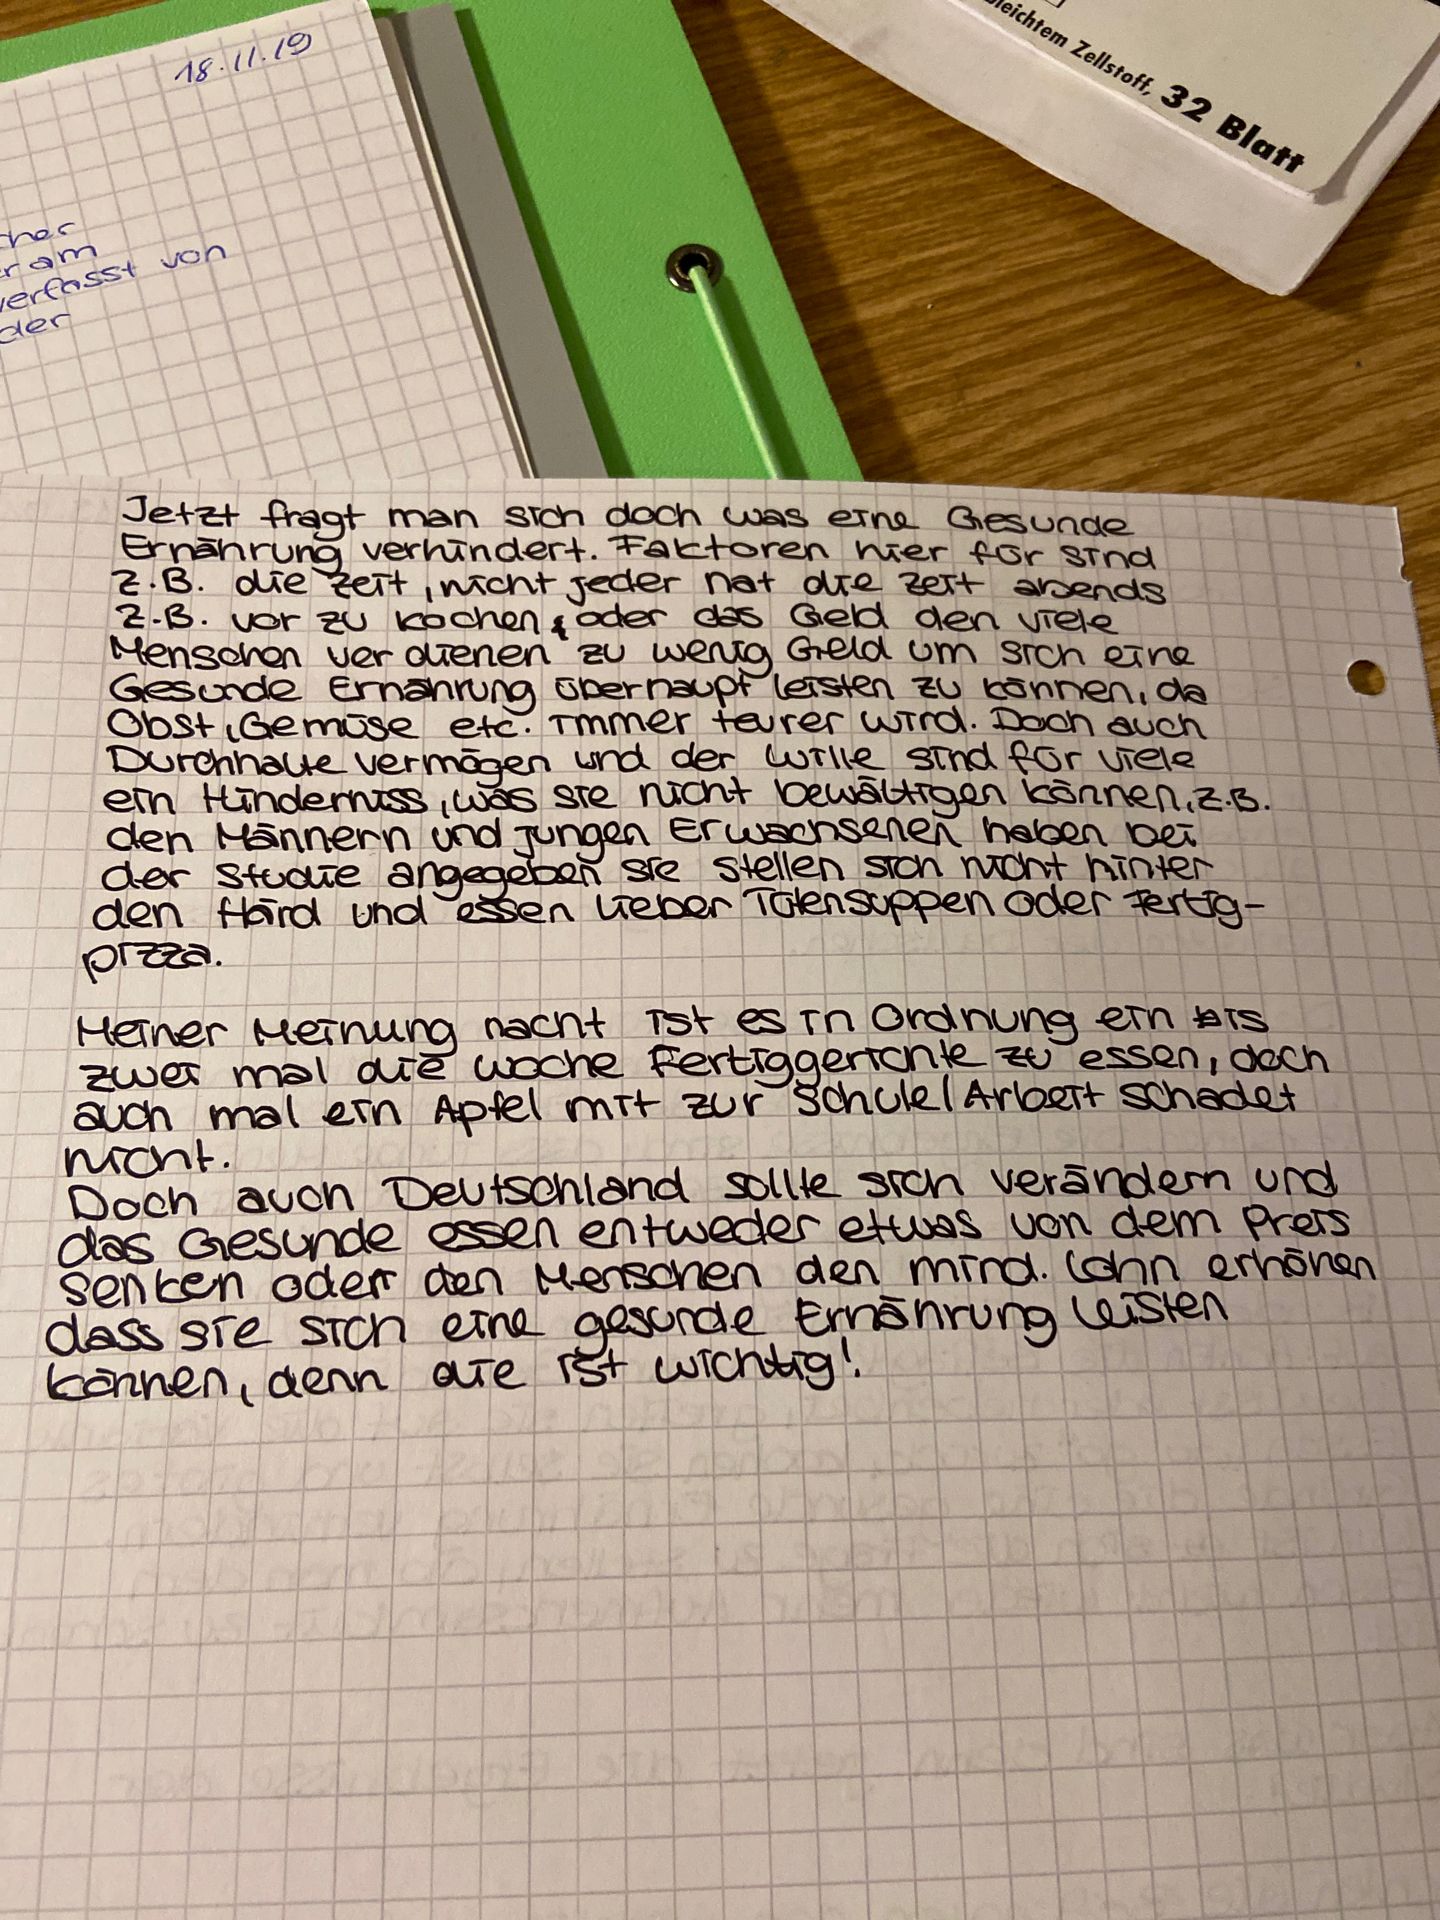 18.11.19
bleichtem Zellstoff, 32 Blatt
cher
r am
verfasst von
der
Jetzt fragt man sich doch was eine Gesunde
Ernährung verhindert. Faktoren hier für sind
z.B. die Zeit, nicht jeder hat die Zeit abends
z.B. vor zu kochen, oder das Geld den viele
Menschen ver dienen zu wenig Geld um sich eine
Gesunde Ernährung überhaupt leisten zu können, da
Obst, Gemüse etc. immer teurer wird. Doch auch
Durchhalte vermögen und der Wille sind für viele
ein Hinderniss, was sie nicht bewältigen können, z.B.
den Männern und jungen Erwachsenen haben bei
der Studie angegeben sie stellen sich nicht hinter
den Härd und essen lieber Tütensuppen oder Fertig-
pizza.
Meiner Meinung nacht ist es in Ordnung ein bis
zwei mal die woche Fertiggerichte zu essen, doch
auch mal ein Apfel mit zur Schule/Arbeit schadet
nicht.
Doch auch Deutschland sollte sich verändern und
das Gesunde essen entweder etwas von dem Preis
senken oder den Menschen den mind. Lohn erhöhen
dass sie sich eine gesunde Ernährung leisten
können, denn die ist wichtig!